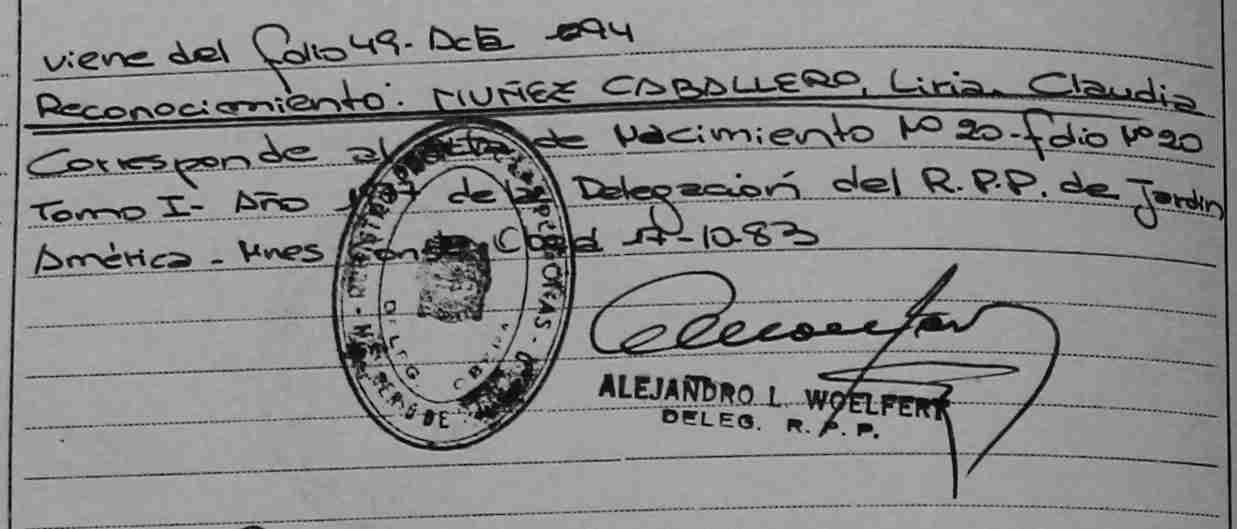 viene del folio 49- Acta 094
Reconocimiento: NUÑEZ CABALLERO, Lirian Claudia
Corresponde al de Nacimiento Nº 20-folio Nº 20
Tomo I- Año de la Delegación del R.P.P. de Jardín
América - Mnes 17-10-83
DELEG.
ALEJANDRO L. WOELFERT
DELEG. R. P. P.